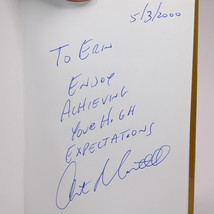 5/3/2000
To Erin
Enjoy
Achieving
Your High
Expectations